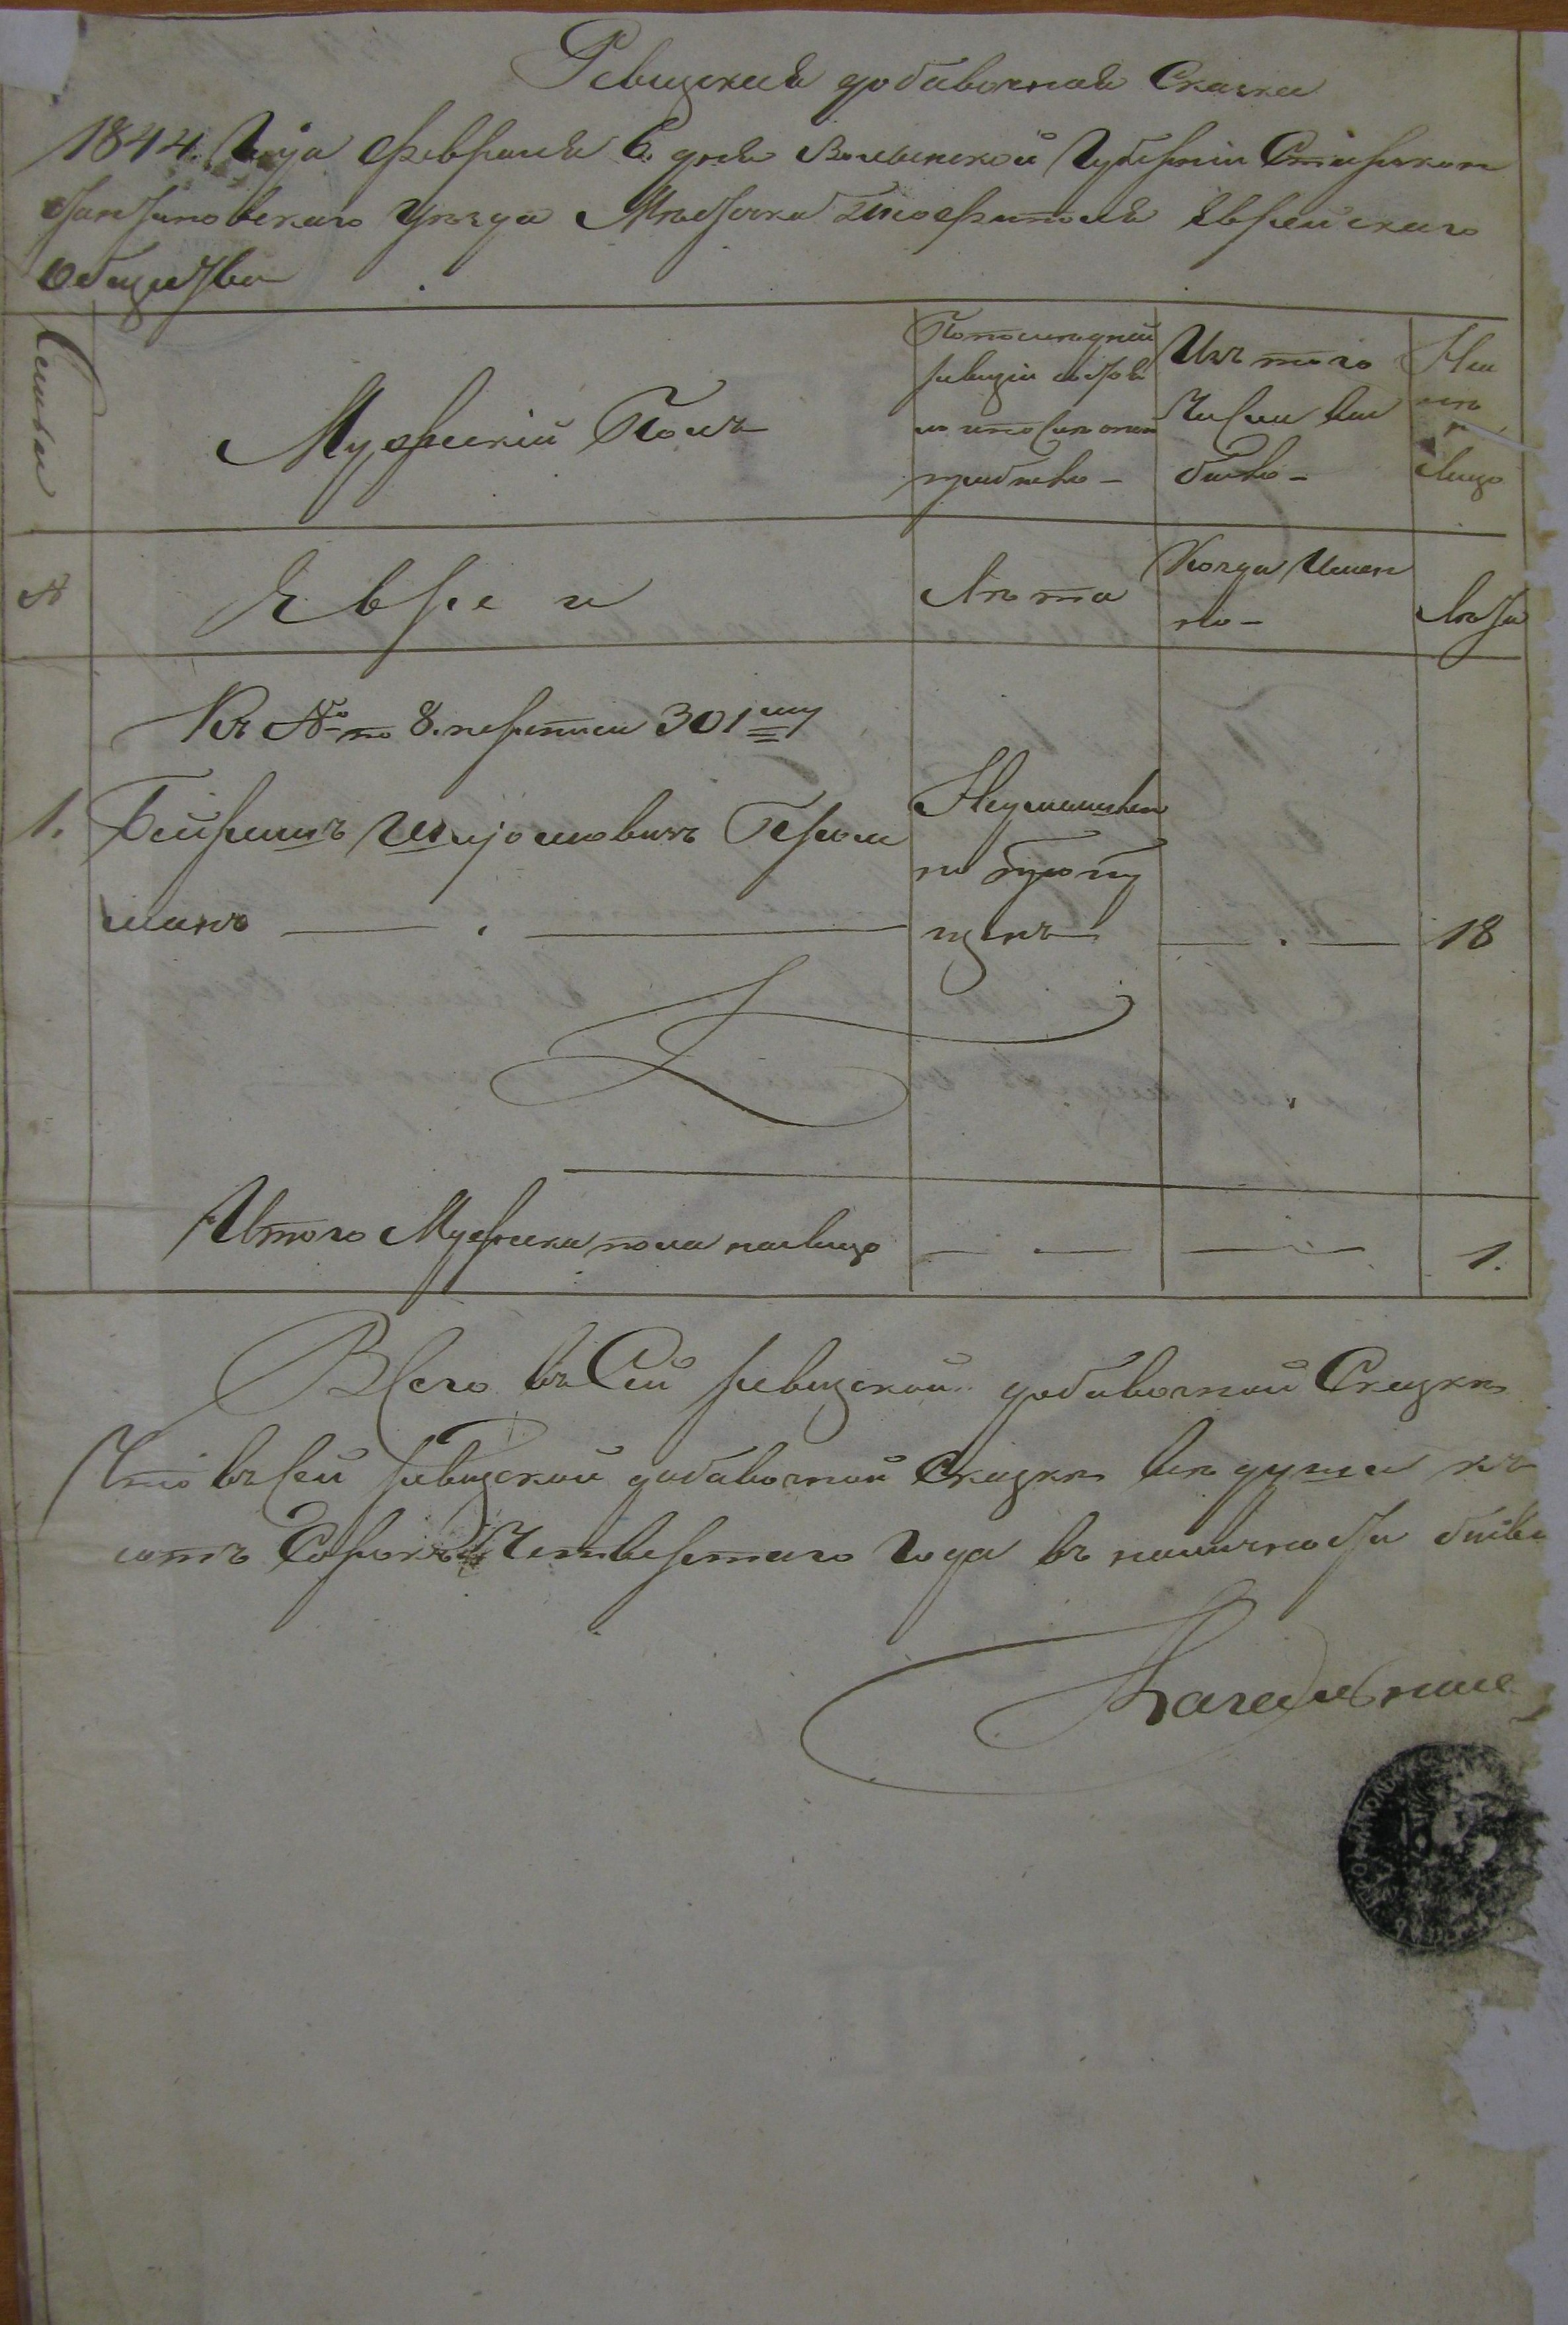 Ревизская добавочная Сказка
1844. Года февраля 6. дня Волынской Губерніи Старокон
стантиновского Уѣзда Мѣстечка Теофиполя Еврейскаго
Общества
Семьи
Мужескій Полъ
По последней
ревизіи состоя
ло и после оной
прибыло –
Изъ того
числа вы
было –
Ны
нѣ
на
лицо
№
Евреи
Лѣта
Когда Имен
но –
Лѣта
Къ № по 8. переписи 301му
1.
Бейришъ Шліомовичъ Герш
манъ
Неумышлен
но пропу
щенъ
18
Итого Мужеска пола налицо
1.
Всего въ Сей ревизской добавочной Сказкѣ
Что въ сей ревизской добавочной Сказкѣ всѣ души къ
сотъ Сорокъ Четвертаго Года въ наличности бывш